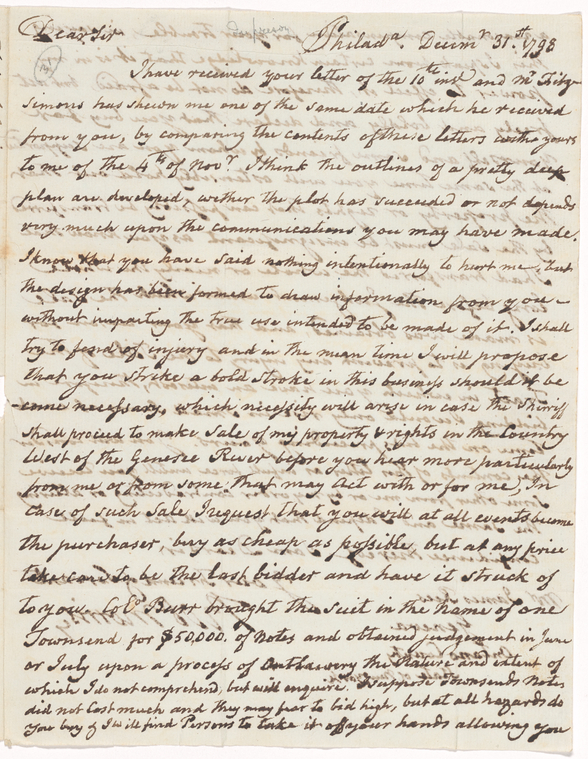 Dear Sir Philada. Decemr 31st. 1798
I have received your letter of the 10th inst and Mr Fitz
Simons has shewn me one of the same date which he received
from you, by comparing the contents of these letters with yours
to me of the 4th of Novr. I think the outlines of a pretty deep
plan are developed, wether the plot has succeeded or not depends
very much upon the communications you may have made.
I know that you have said nothing intentionally to hurt me, but
the design has been formed to draw information from you
without imparting the true use intended to be made of it. I shall
try to fend of injury and in the mean time I will propose
that you strike a bold stroke in this business should it be
come necessary, which necessity will arise in case the Sheriff
shall proceed to make Sale of my property & rights in the Country
West of the Genesee River before you hear more particularly
from me or from some that may act with or for me, In
case of such Sale I request that you will at all events become
the purchaser, buy as cheap as possible, but at any price
take care to be the last bidder and have it struck of
to you. Colo Burr brought the suit in the name of one
Townsend for $50,000. of Notes and obtained judgement in June
or July upon a process of Outlawery the Nature and intent of
which I do not comprehend, but will enquire. I suppose Townsends Notes
did not Cost much and they may fear to bid high, but at all hazards do
you buy & I will find Persons to take it of your hands allowing you